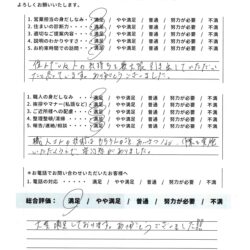 よろしくお願いいたします。
1. 営業担当の身だしなみ ・・・ 満足 / やや満足 / 普通 / 努力が必要 / 不満
2. 住まいの診断力 ・・・ 満足 / やや満足 / 普通 / 努力が必要 / 不満
3. 適切なご提案の内容 ・・・ 満足 / やや満足 / 普通 / 努力が必要 / 不満
4. 説明のわかりやすさ ・・・ 満足 / やや満足 / 普通 / 努力が必要 / 不満
5. お約束時間での訪問 ・・・ 満足 / やや満足 / 普通 / 努力が必要 / 不満
ありがとうございました。
1. 職人の身だしなみ ・・・ 満足 / やや満足 / 普通 / 努力が必要 / 不満
2. 挨拶やマナー(私語など) 満足 / やや満足 / 普通 / 努力が必要 / 不満
3. ご近所様への配慮 ・・・ 満足 / やや満足 / 普通 / 努力が必要 / 不満
4. 整理整頓/清掃 ・・・ 満足 / やや満足 / 普通 / 努力が必要 / 不満
5. 報告/連絡/相談 ・・・ 満足 / やや満足 / 普通 / 努力が必要 / 不満
職人さんの
いただけて がありました。
*お電話でお問い合わせいただいたお客様へ
1. 電話の対応 ・・・ 満足 / やや満足 / 普通 / 努力が必要 / 不満
総合評価: 満足 / やや満足 / 普通 / 努力が必要 / 不満
大変満足しております。ありがとうございました!!